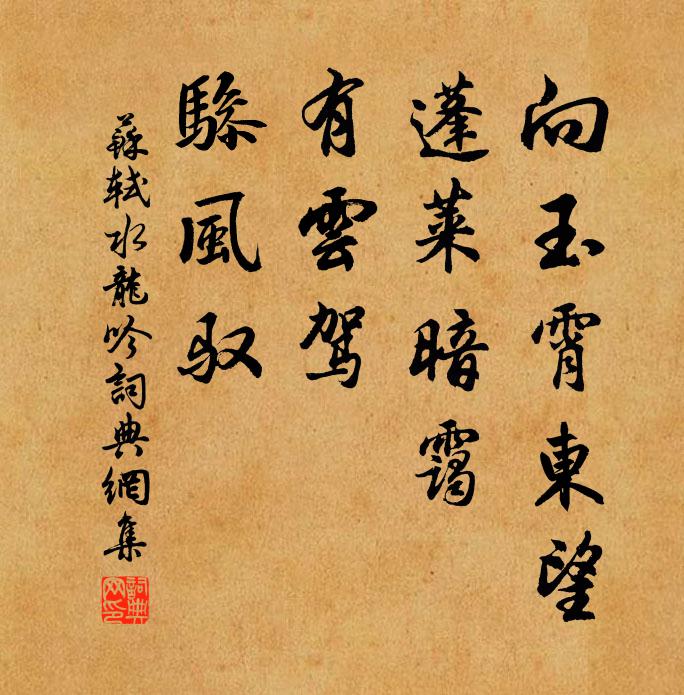 向玉霄東望
蓬萊暗靄
有雲駕
驂風馭
蘇軾水龍吟詞典網集
詞典网印